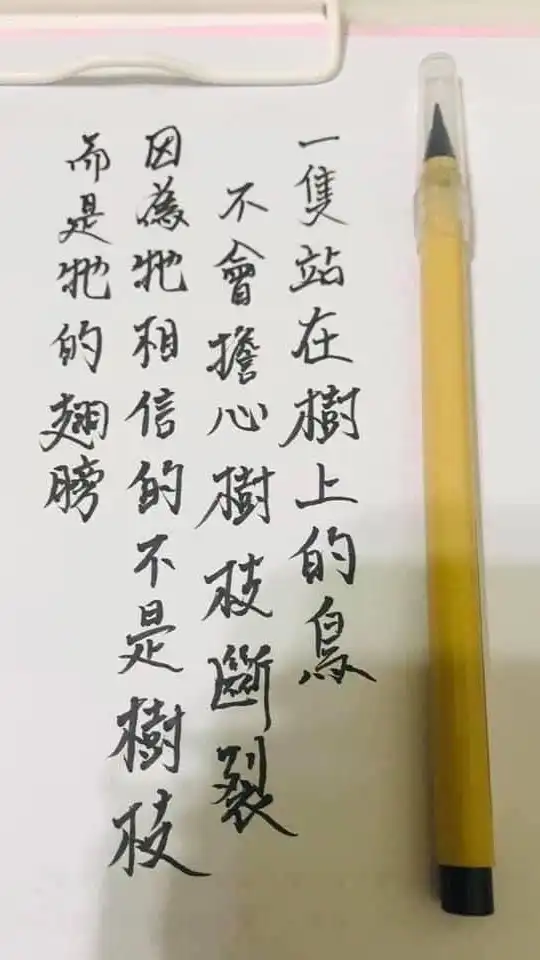 一隻站在樹上的鳥
不會擔心樹枝斷裂
因為牠相信的不是樹枝
而是牠的翅膀